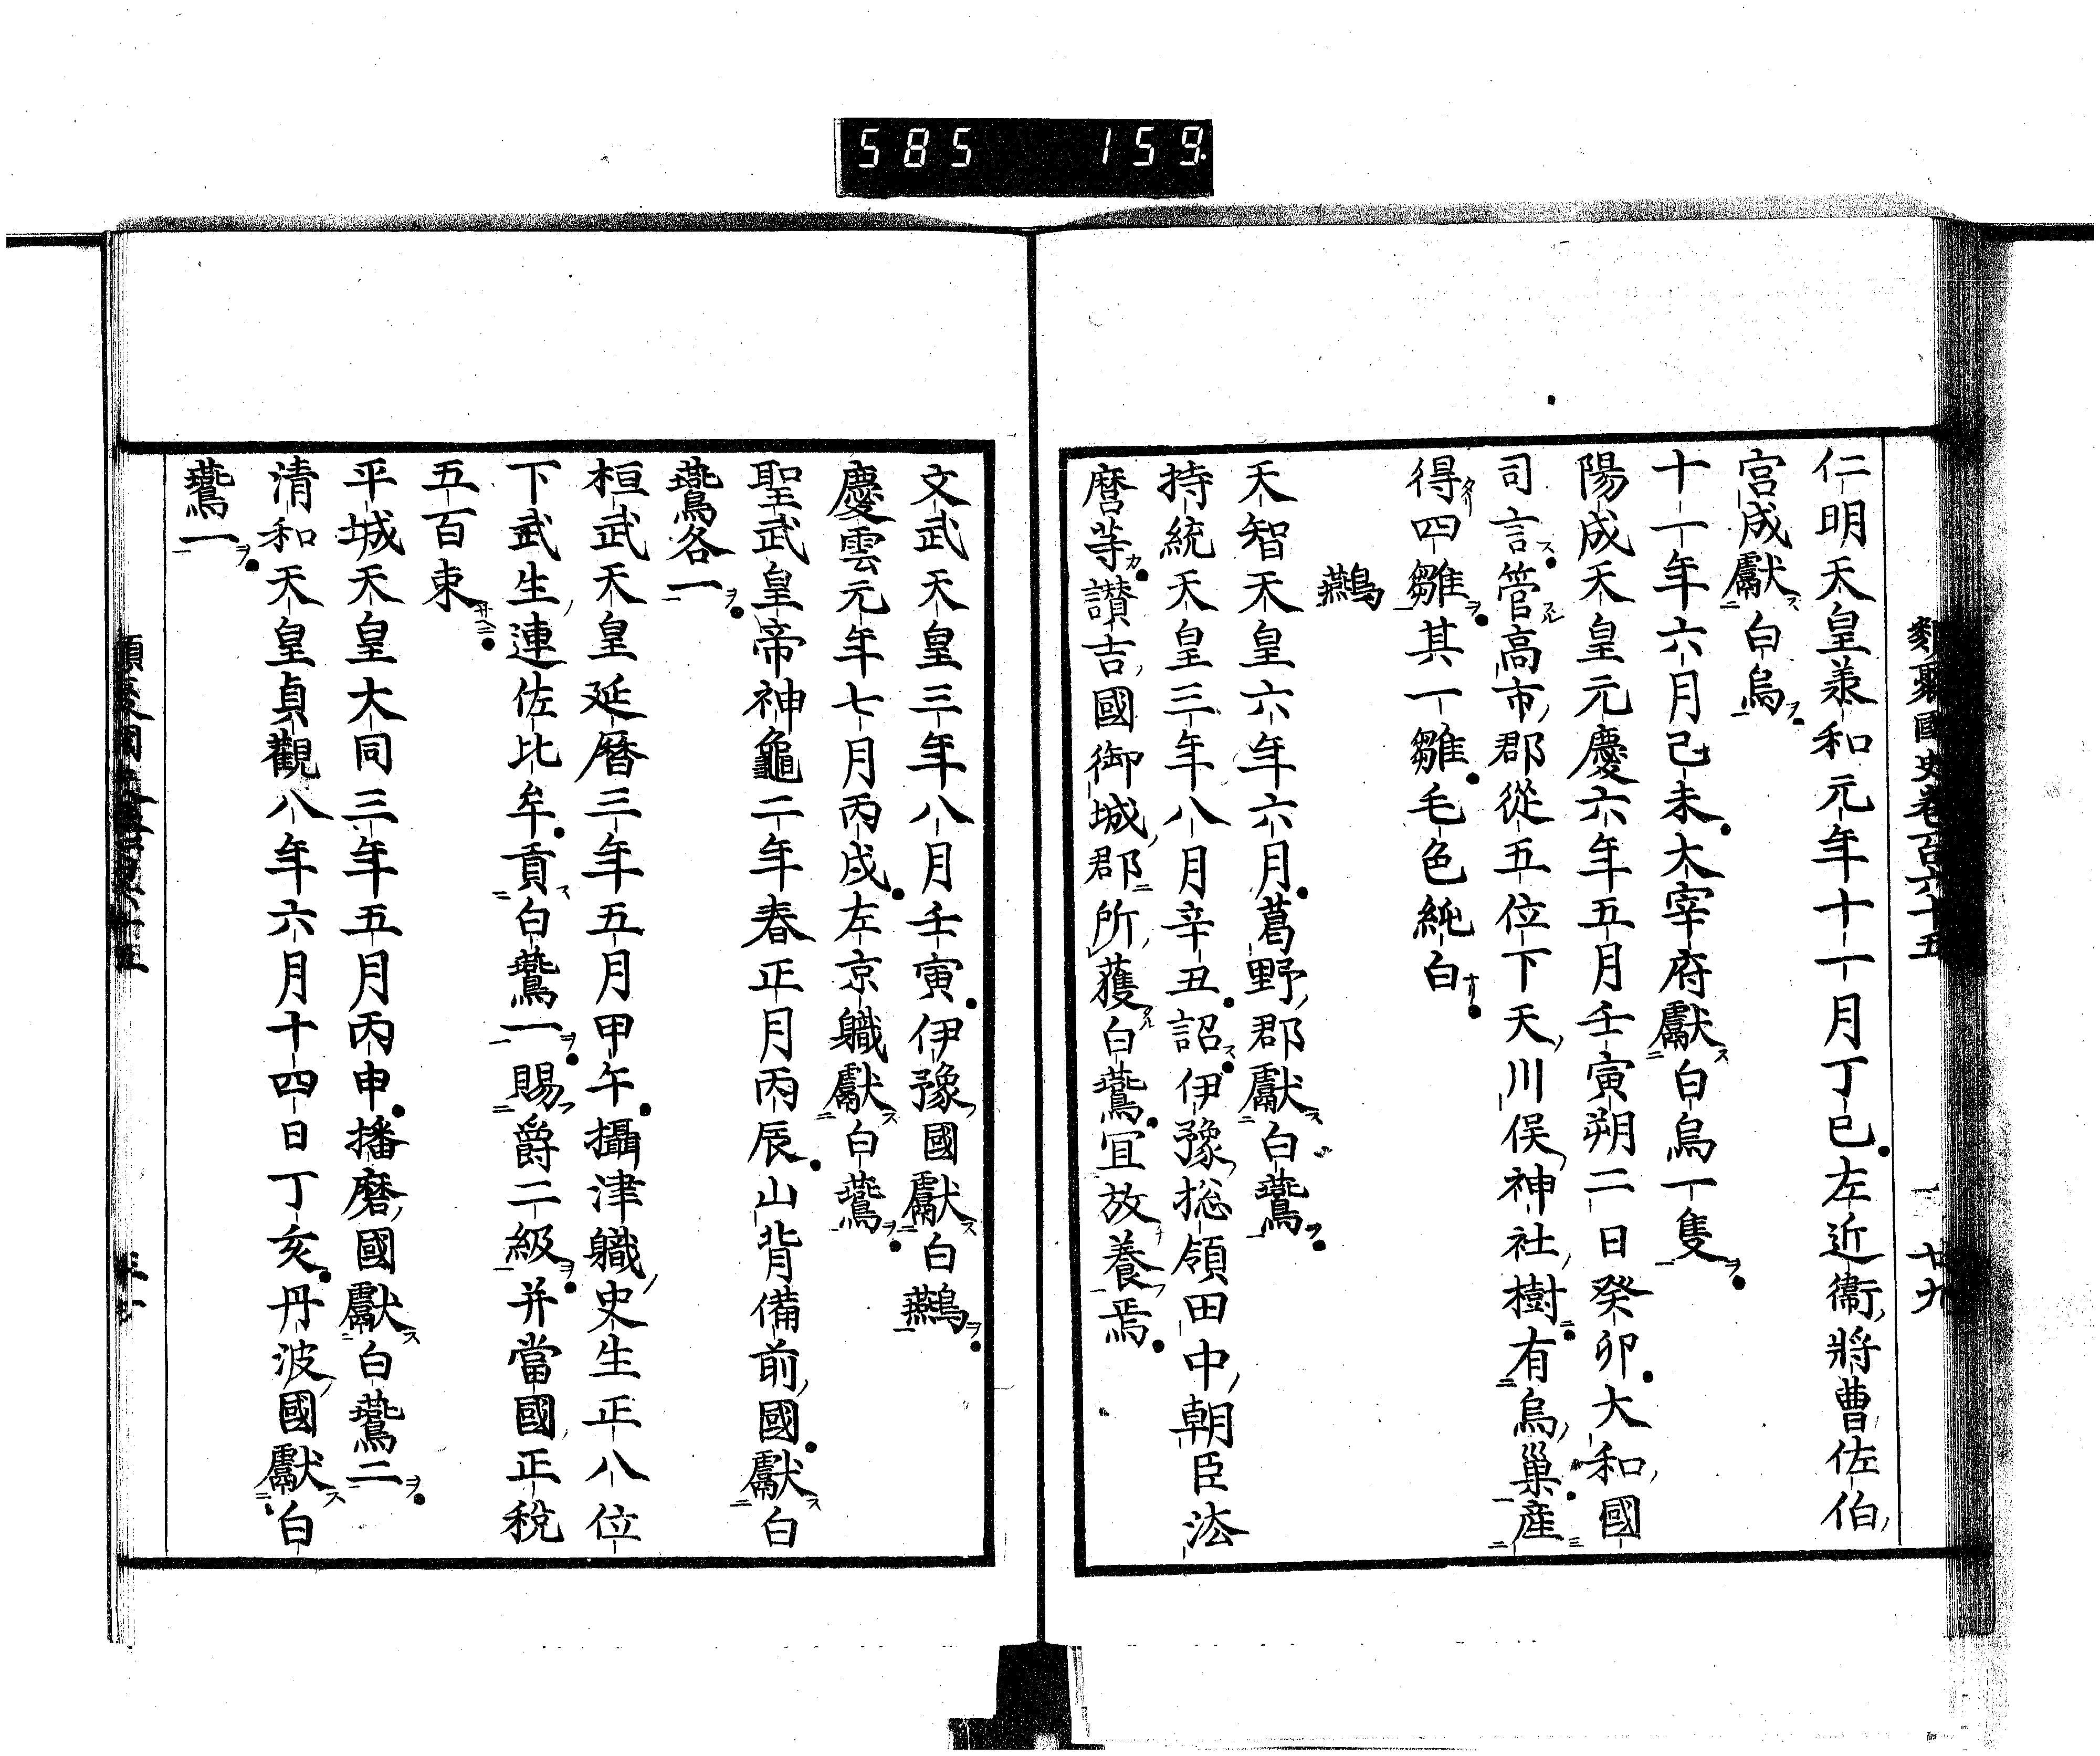 585 159
類聚國史卷百六十五 廿九
仁明天皇承和元年十一月丁巳左近衞將曹佐伯
宮成獻白烏
十一年六月己未大宰府獻白烏一隻
陽成天皇元慶六年五月壬寅朔二日癸卯大和國
司言管高市郡從五位下天川俣神社樹有烏巢産
得四雛其一雛毛色純白
鷰
天智天皇六年六月葛野郡獻白鷰
持統天皇三年八月辛丑詔伊豫総領田中朝臣法
麿等讃吉國御城郡所獲白鷰宜放養焉
文武天皇三年八月壬寅伊豫國獻白鷰
慶雲元年七月丙戌左京職獻白鷰
聖武皇帝神龜二年春正月丙辰山背備前國獻白
鷰各一
桓武天皇延暦三年五月甲午攝津職史生正八位
下武生連佐比牟貢白鷰一賜爵二級并當國正税
五百束
平城天皇大同三年五月丙申播磨國獻白鷰二
清和天皇貞觀八年六月十四日丁亥丹波國獻白
鷰一